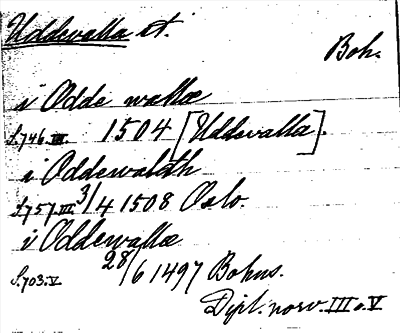 Uddevalla st.
Boh.
i Odde wallæ
S. 746. III. 1504 [Uddevalla].
i Oddewaldh
S. 757. III. 3/4 1508 Oslo.
i Oddewallæ
S. 703. V 28/6 1497 Bohus.
Dipl. norv. III o. V